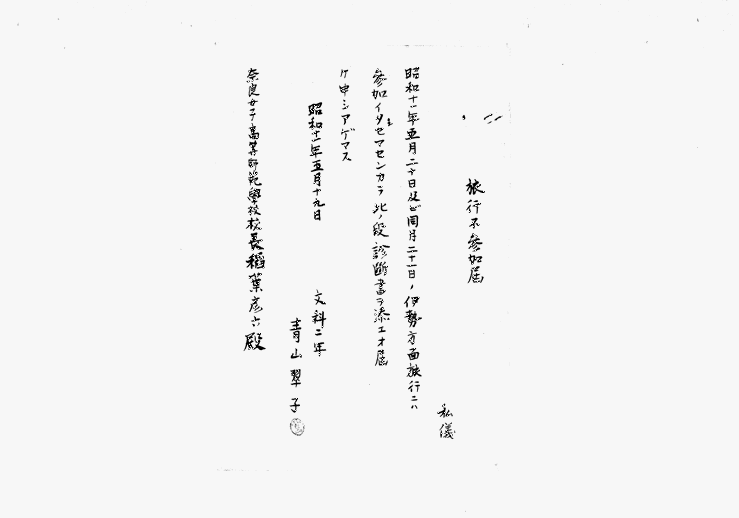 旅行不參加届
私儀
昭和十一年五月二十日及ビ同月二十一日ノ伊勢方面旅行ニハ
參加イタセマセンカラ此ノ段診断書ヲ添エオ届
ケ申シアゲマス
昭和十一年五月十九日
文科二年
青山翠子
奈良女子高等師範學校校長稲葉彦六殿